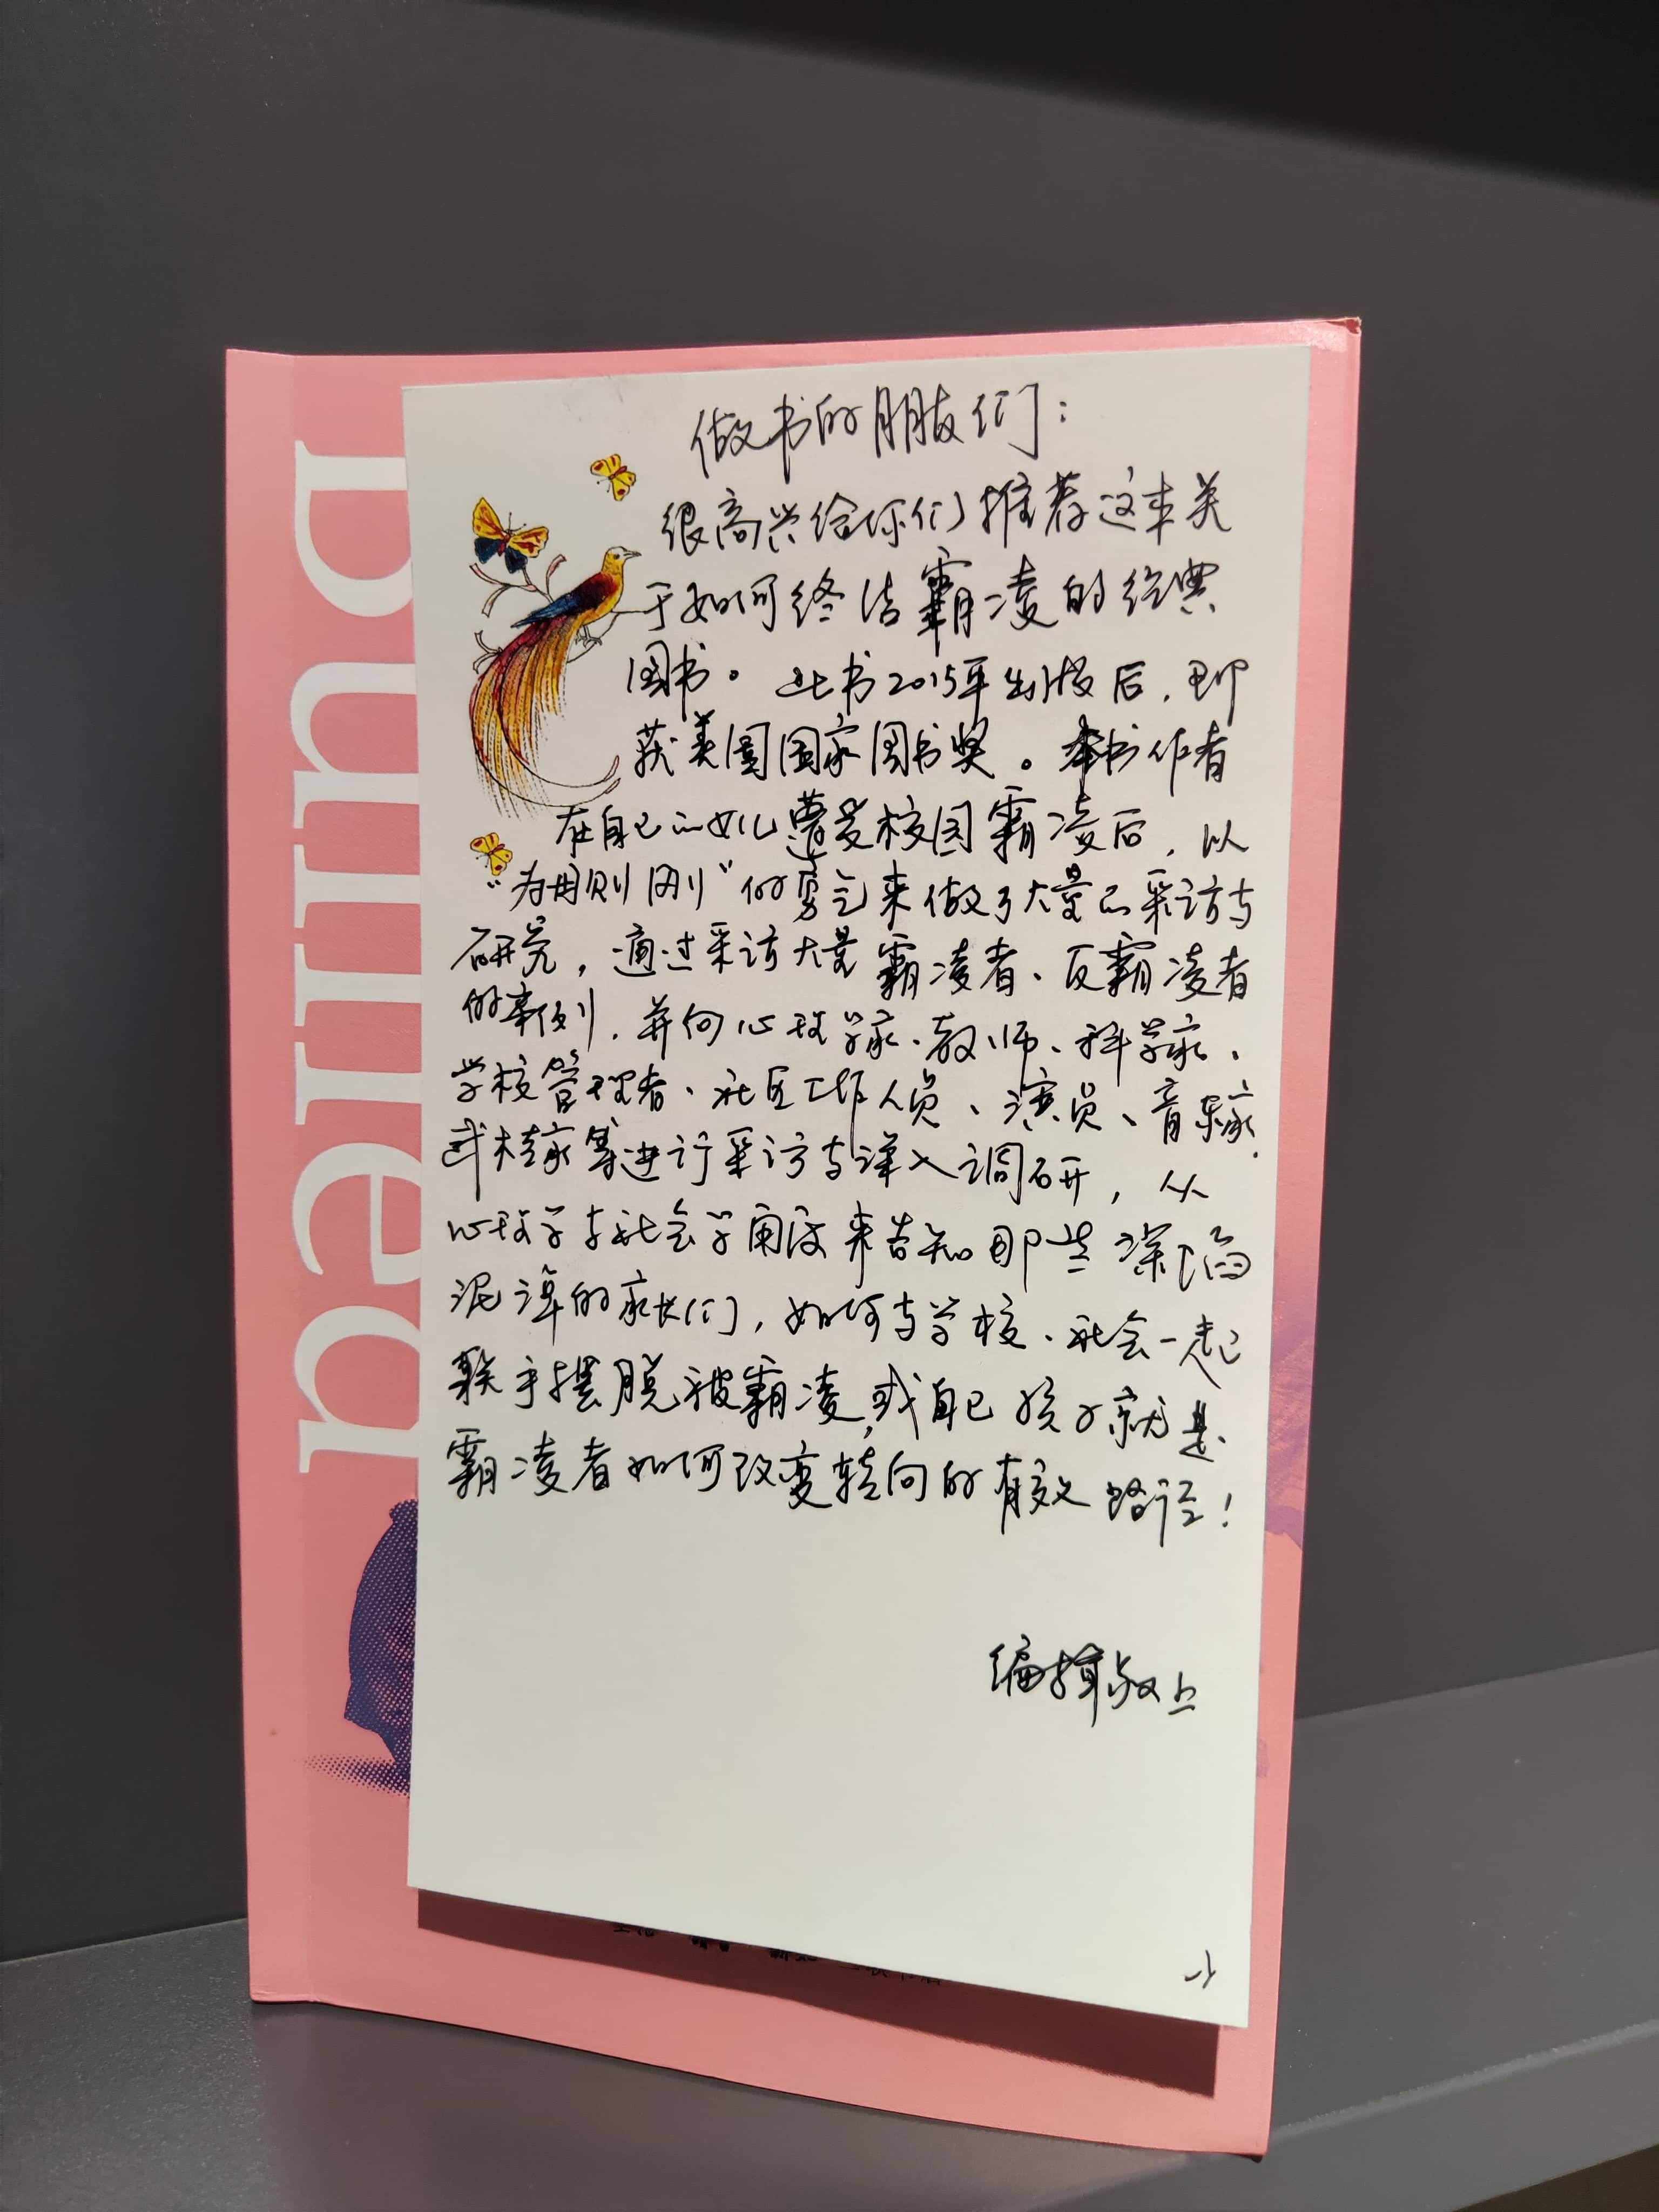 做书的朋友们：
很高兴给你们推荐这本关
于如何终结霸凌的经典
图书。此书2015年出版后，即
获美国国家图书奖。本书作者
在自己的女儿遭受校园霸凌后，以
“为母则刚”的勇气来做了大量的采访与
研究，通过采访大量霸凌者、反霸凌者
的案例，并向心理学家、教师、科学家、
学校管理者、社区工作人员、演员、音乐家、
武术家等进行采访与深入调研，从
心理学与社会学角度来告知那些深陷
泥潭的家长们，如何与学校、社会一起
联手摆脱被霸凌，或自己孩子就是
霸凌者如何改变转向的有效路径！
编辑敬上